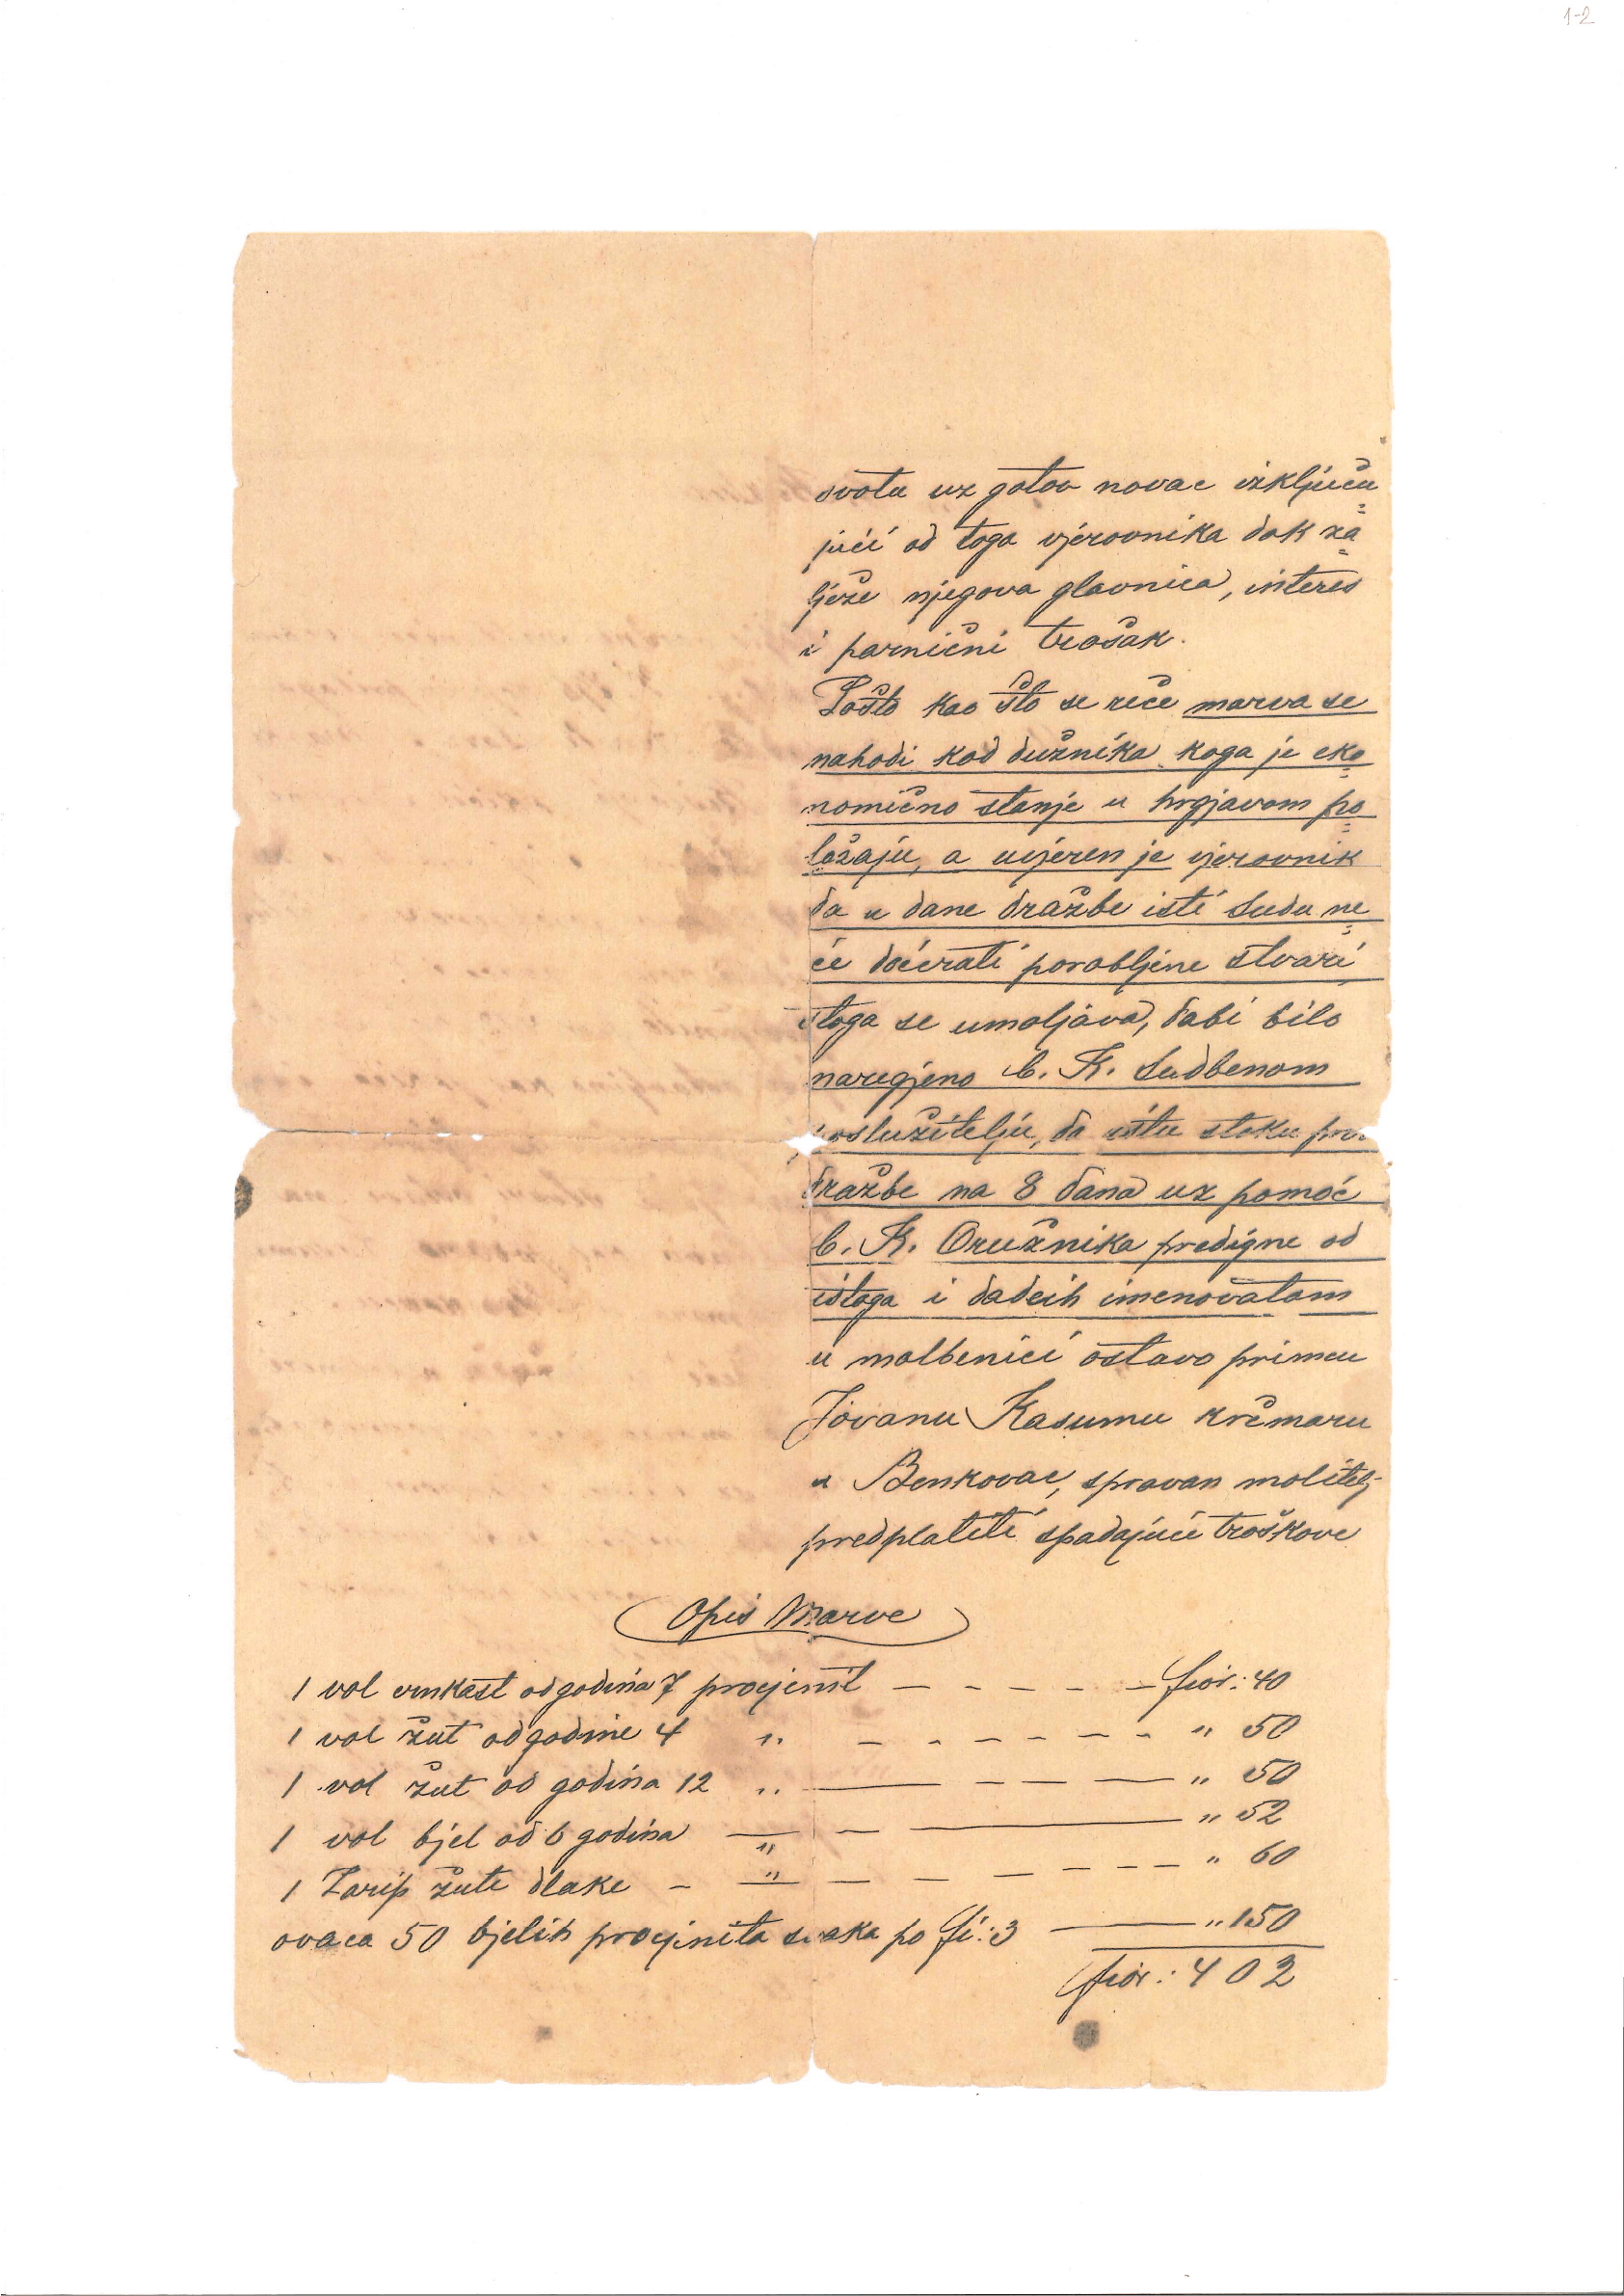 1-2
svotu uz gotov novac izključu=
jući od toga vjerovnika dok za=
ljeze njegova glavnica, interes
i parnični trošak.
Pošto kao što se reče marva se
nahodi kod dužnika koga je eko=
nomično stanje u hrgjavom po=
ložaju, a uvjeren je vjerovnik
da u dane dražbe isti Sudu ne=
će doćerati porobljene stvari
stoga se umoljava, dabi bilo
naregjeno C. K. Sudbenom
poslužitelju, da istu stoku
dražbe na 8 dana uz pomoć
C. K. Oružnika predigne od
istoga i dadeih imenovatom
u molbenici ostavo primcu
Jovanu Kasumu krčmaru
u Benkovac, spravan molitelj
predplatiti spadajuće troškove
Opis Marve
1 vol od godina 7 procjenit — - - - - — fior: 40
1 vol žut od godine 4 " — - - — — - - " 50
1 vol žut od godina 12 " —— — — — " 50
1 vol bjel od 6 godina — " — —— " 52
1 žute dlake - " — — — - — — " 60
ovaca 50 bjelih procjenita svaka po fi: 3 —— " 150
fior: 402